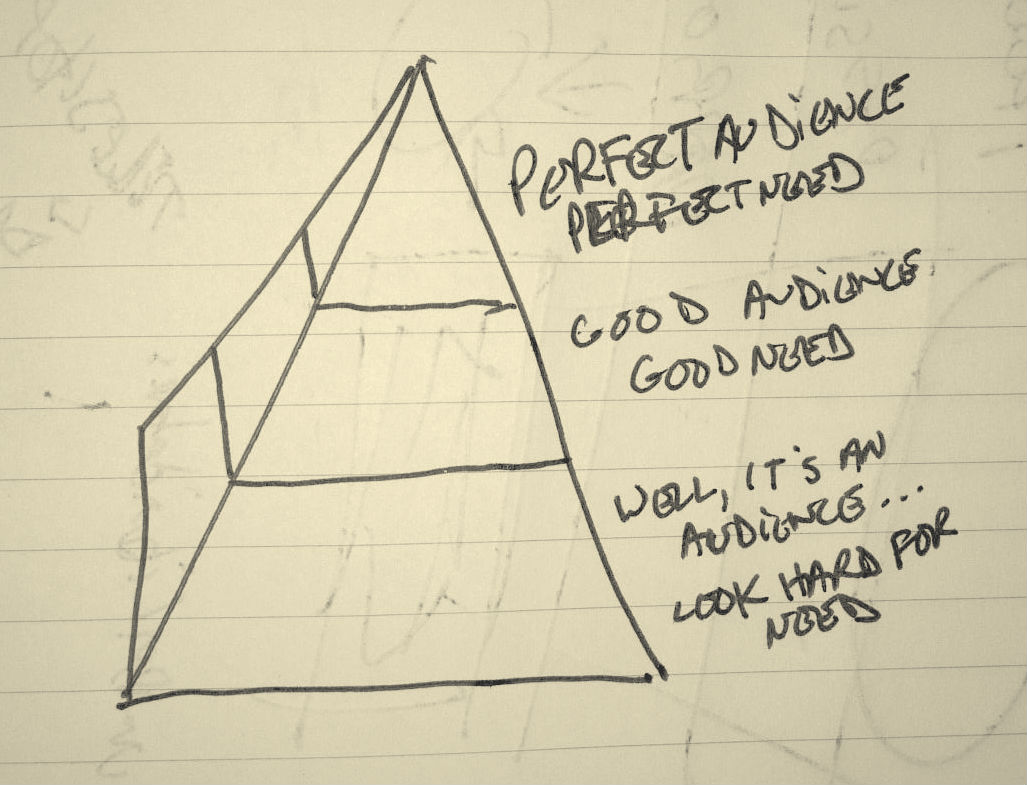 PERFECT AUDIENCE
PERFECT NEED
GOOD AUDIENCE
GOOD NEED
WELL, IT'S AN
AUDIENCE...
LOOK HARD FOR
NEED